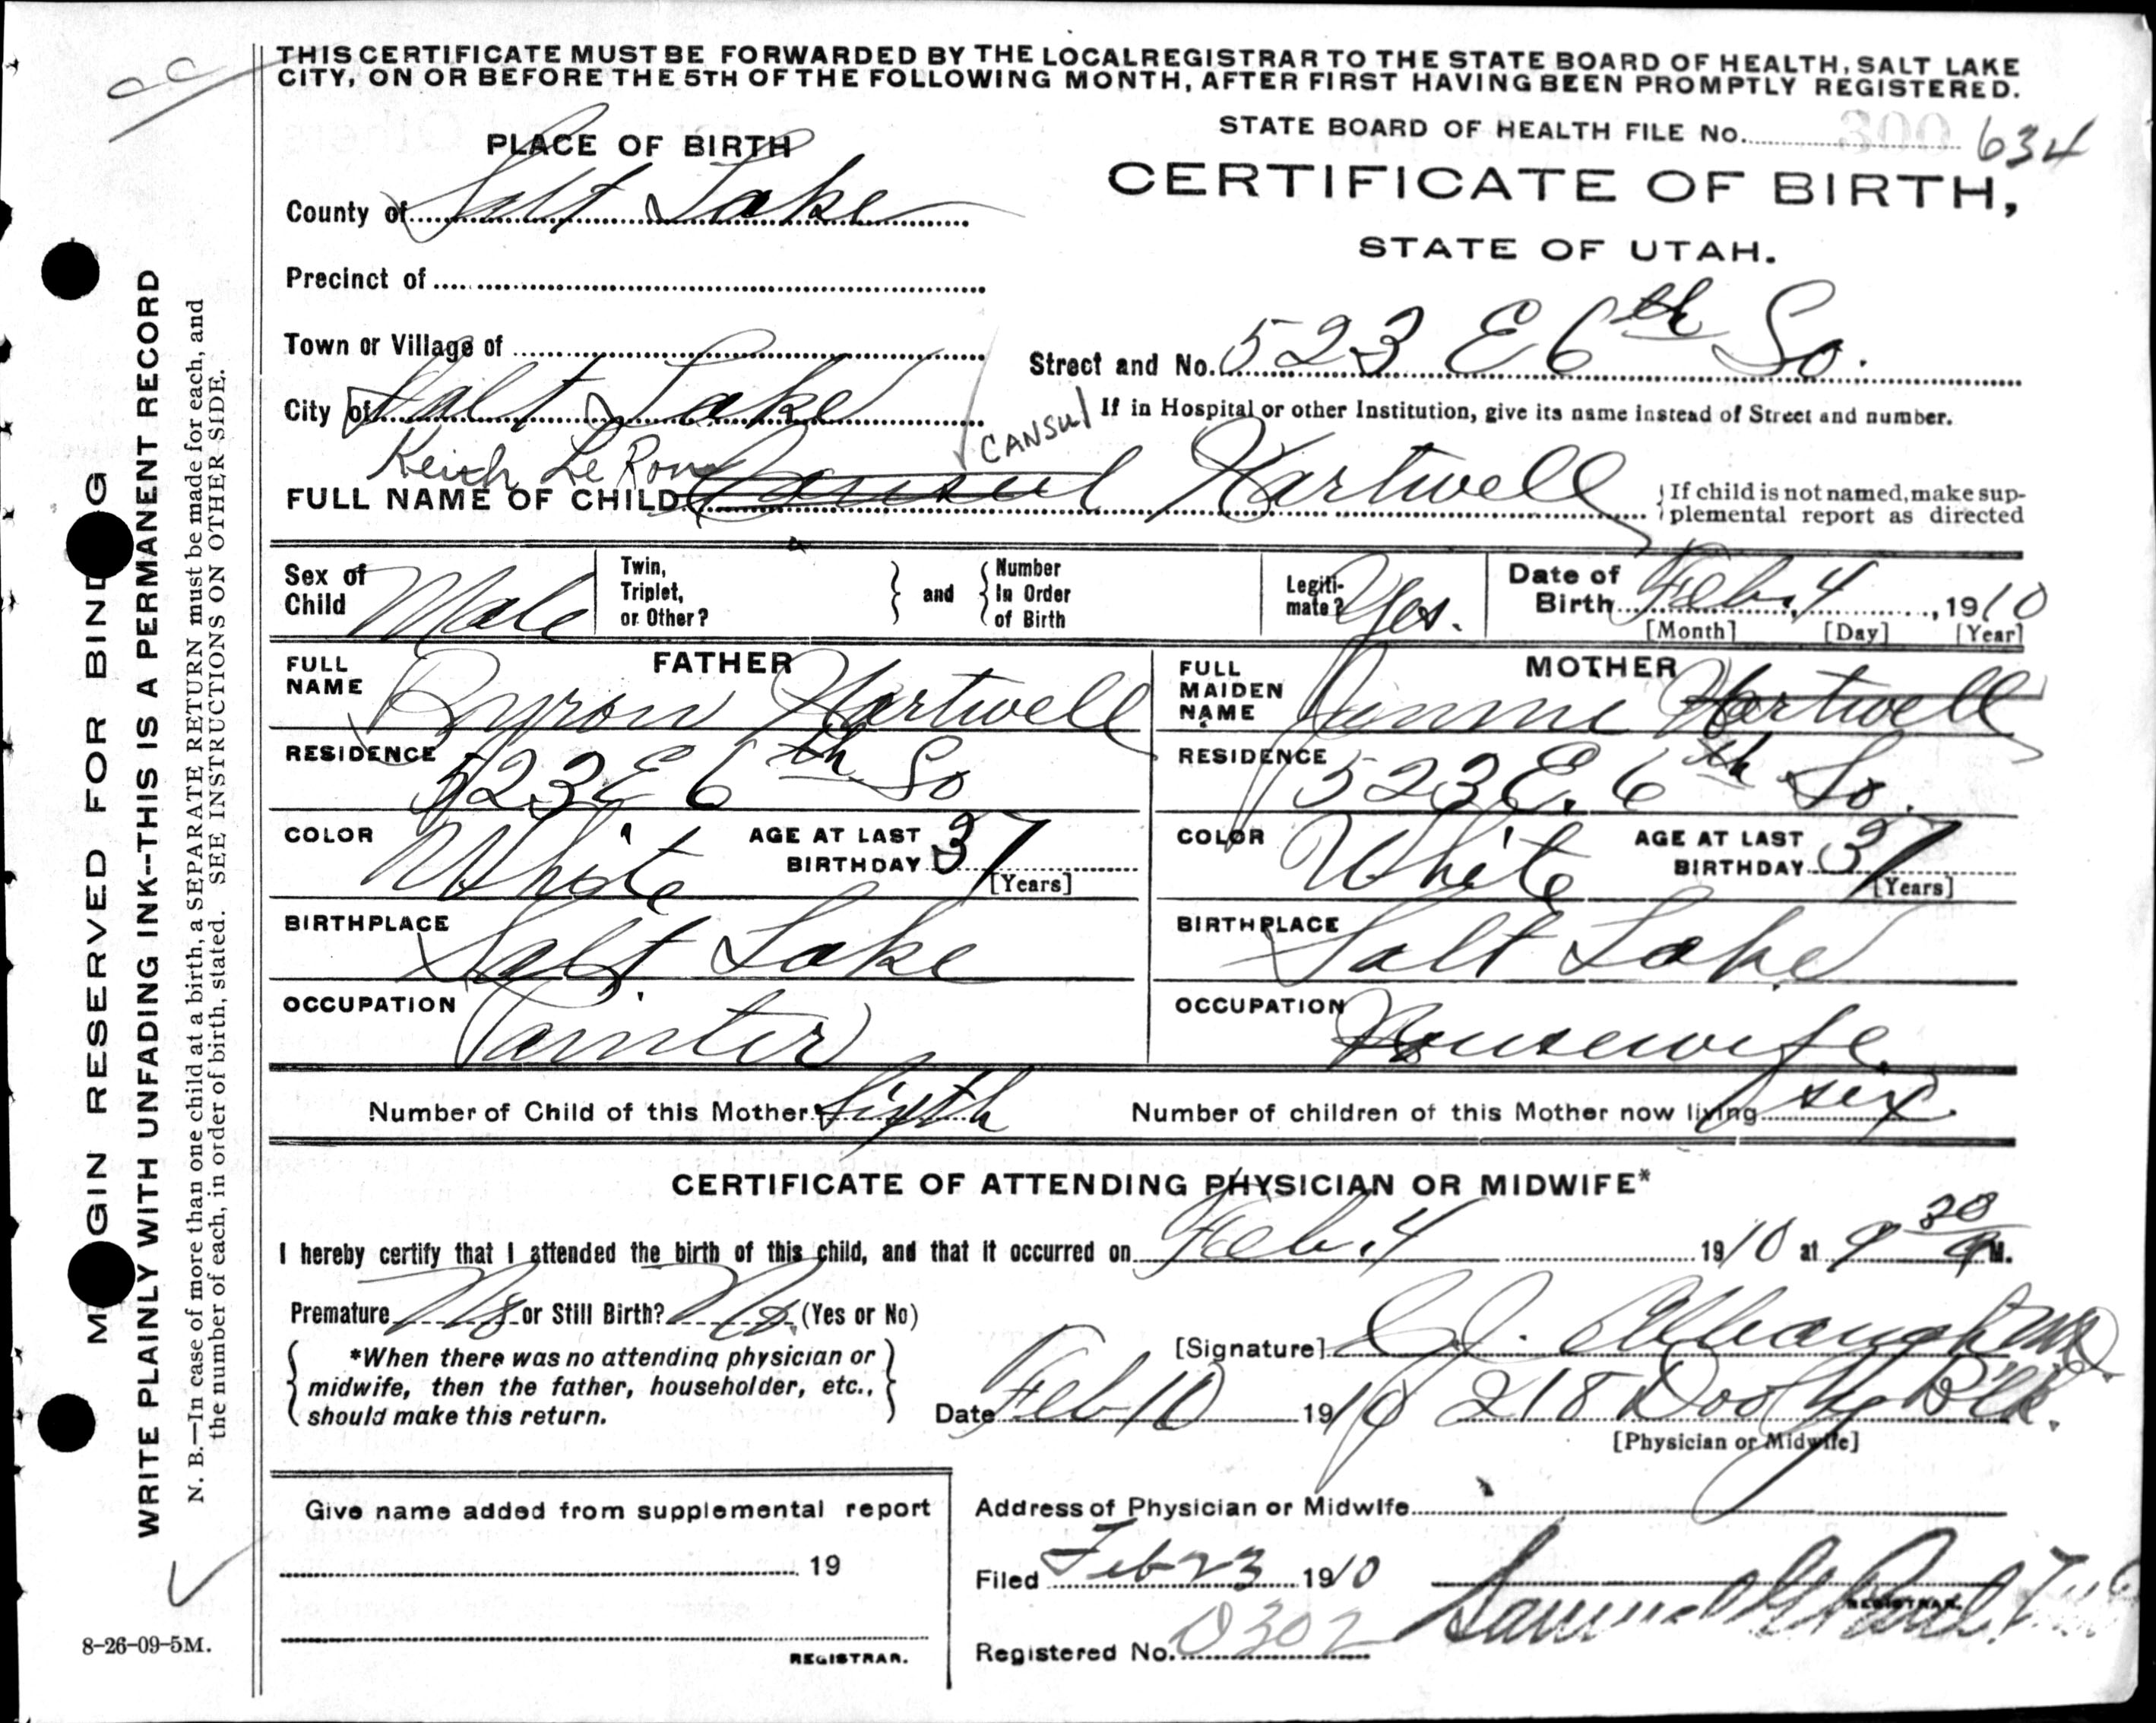 THIS CERTIFICATE MUST BE FORWARDED BY THE LOCAL REGISTRAR TO THE STATE BOARD OF HEALTH, SALT LAKE
CITY, ON OR BEFORE THE 5TH OF THE FOLLOWING MONTH, AFTER FIRST HAVING BEEN PROMPTLY REGISTERED.
STATE BOARD OF HEALTH FILE No. 300 634
PLACE OF BIRTH
CERTIFICATE OF BIRTH,
STATE OF UTAH.
County of Salt Lake
Precinct of
Town or Village of
Street and No. 523 E 6th So.
City of Salt Lake
If in Hospital or other Institution, give its name instead of Street and number.
CANSUL
Keith Le Roy
FULL NAME OF CHILD Consul Hartwell
If child is not named, make sup-
plemental report as directed
Sex of Child Male
Twin, Triplet, or Other? and Number In Order of Birth
Legiti-mate? Yes.
Date of Birth Feb. 4, 1910
[Month] [Day] [Year]
FATHER
FULL NAME Byron Hartwell
RESIDENCE 523 E 6th So
COLOR White AGE AT LAST BIRTHDAY 37 [Years]
BIRTHPLACE Salt Lake
OCCUPATION Painter
MOTHER
FULL MAIDEN NAME Hartwell
RESIDENCE 523 E. 6th So.
COLOR White AGE AT LAST BIRTHDAY 37 [Years]
BIRTHPLACE Salt Lake
OCCUPATION Housewife
Number of Child of this Mother Sixth Number of children of this Mother now living six
CERTIFICATE OF ATTENDING PHYSICIAN OR MIDWIFE*
I hereby certify that I attended the birth of this child, and that it occurred on Feb. 4 1910 at 9 30 M.
Premature No or Still Birth? No (Yes or No)
*When there was no attending physician or
midwife, then the father, householder, etc.,
should make this return.
[Signature]
Date Feb 10 1910 218 Dooly Blk.
[Physician or Midwife]
Give name added from supplemental report
19
REGISTRAR.
Address of Physician or Midwife
Filed Feb 23 1910
REGISTRAR.
Samuel G Paul
Registered No. 0302
8-26-09-5M.
MARGIN RESERVED FOR BINDING
WRITE PLAINLY WITH UNFADING INK--THIS IS A PERMANENT RECORD
N. B.—In case of more than one child at a birth, a SEPARATE RETURN must be made for each, and
the number of each, in order of birth, stated. SEE INSTRUCTIONS ON OTHER SIDE.